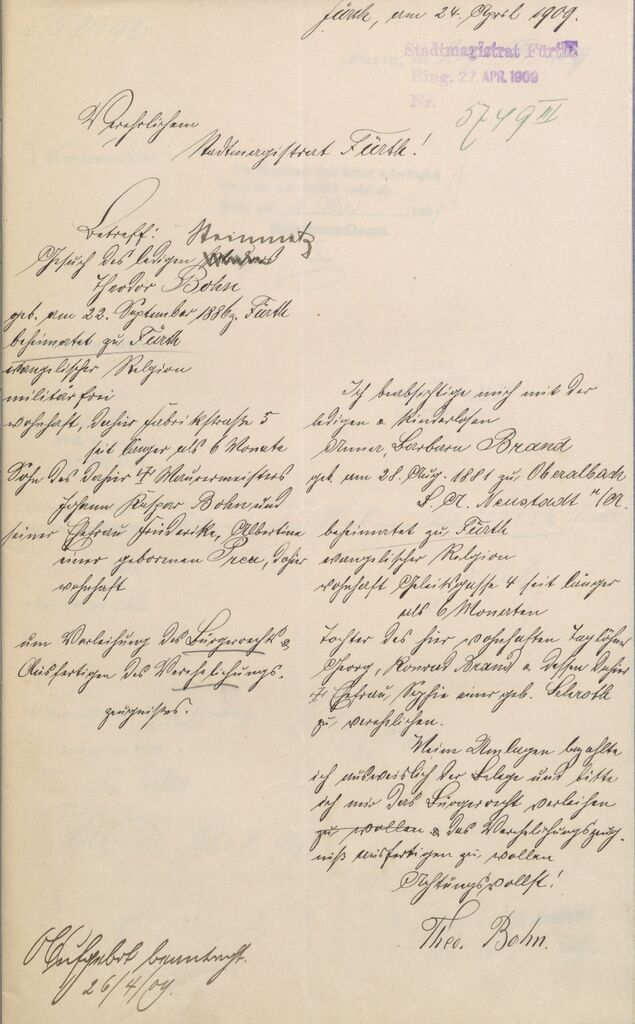 Fürth, am 24. April 1909.
Stadtmagistrat Fürth
Eing. 27. APR. 1909
Nr.
5749 III
Verehrlichem
Stadtmagistrat Fürth!
Betreff:
Gesuch des ledigen Steinmetz
Theodor Bohn
geb. am 22. September 1886 z. Fürth
beheimatet zu Fürth
evangelischer Religion
militärfrei
wohnhaft, dahier Fabrikstraße 5
seit länger als 6 Monate
Sohn des dahier † Maurermeisters
Johann Kaspar Bohn und
seiner Ehefrau Friederike, Albertine
einer gebornen Preu, dahier
wohnhaft
um Verleihung des Bürgerrechts &
Ausfertigen des Verehelichungs-
zeugnisses.
Ich beabsichtige mich mit der
ledigen & kinderlosen
Anna, Barbara Brand
geb. am 28. Aug. 1881 zu Oberalbach
B. A. Neustadt a/A.
beheimatet zu Fürth
evangelischer Religion
wohnhaft Geleitsgasse 4 seit länger
als 6 Monaten
Tochter des hier wohnhaften Taglöhner
Georg, Konrad Brand & dessen dahier
† Ehefrau, Sophie einer geb. Schroth
zu verehelichen.
Meine Umlagen bezahlte
ich ausweislich der Belege und bitte
ich mir das Bürgerrecht verleihen
zu wollen & das Verehelichungszeug-
niß ausfertigen zu wollen
Achtungsvollst!
Theo. Bohn.
Aufgebot beantragt.
26/4/09.